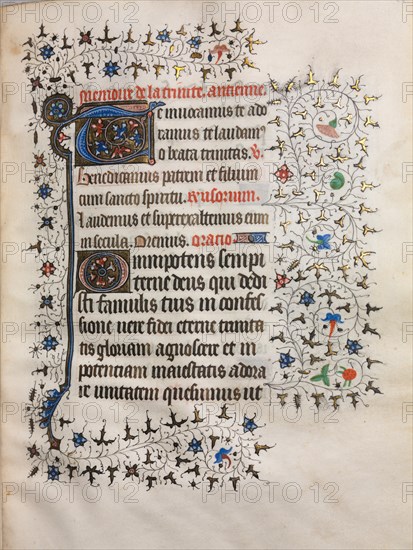 Memoire de la trinite. Antienne
Te invocamus te ado
ramus te laudam9
o beata trinitas. V.
Benedicamus patrem et filium
cum sancto spiritu. Responsorium.
Laudemus et superexaltemus eum
in secula. Oremus. Oracio
Omnipotens sempi
terne deus qui dedi
sti famulis tuis in confes
sione vere fidei eterne trinita
tis gloriam agnoscere et in
potenciam maiestatis adora
re unitatem quesumus ut
PHOTO12